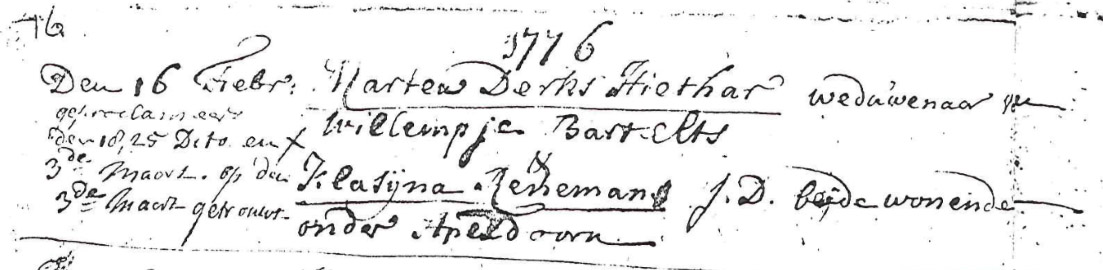 76
1776
Den 16 Febr: Marten Derks Hiethar weduwenaar van
geproclameert
Willempje Bartelts
den 18, 25 Dito en
&
3de Maart. op den
Klasijna Rensemans J. D. beijde wonende
3de Maart getrouwt.
onder Apeldoorn